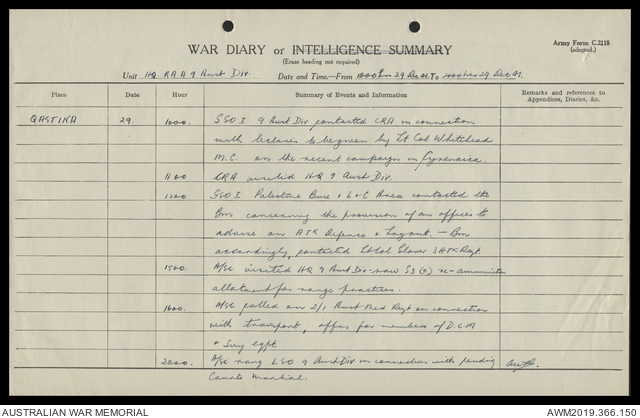 WAR DIARY or INTELLIGENCE SUMMARY
Army Form C.2118
(adapted.)
(Erase heading not required)
Unit HQ RAA 9 Aust Div. Date and Time.—From 1000hrs 29 Dec 41. To 2000hrs 29 Dec 41.
Place Date Hour Summary of Events and Information Remarks and references to
Appendices, Diaries, &c.
QASTINA 29. 1000. GSO I 9 Aust Div contacted CRA in connection
with lectures to be given by Lt Col Whitehead
M.C. on the recent campaign in Cyrenaica.
1100 CRA visited HQ 9 Aust Div.
1200 GSO I Palestine Base & L of C Area contacted the
Bm concerning the provision of an officer to
advise on ATK Defence & Layout. — Bm
accordingly contacted Lt Col Glover 3 ATK Regt.
1500. A/SC visited HQ 9 Aust Div - saw re - ammunition
allotment for range practices.
1600. A/SC called on 2/1 Aust Med Regt in connection
with transport, for members of D.C.M
&
2000. A/SC rang LSO 9 Aust Div in connection with pending
Courts Martial.
AUSTRALIAN WAR MEMORIAL AWM2019.366.150